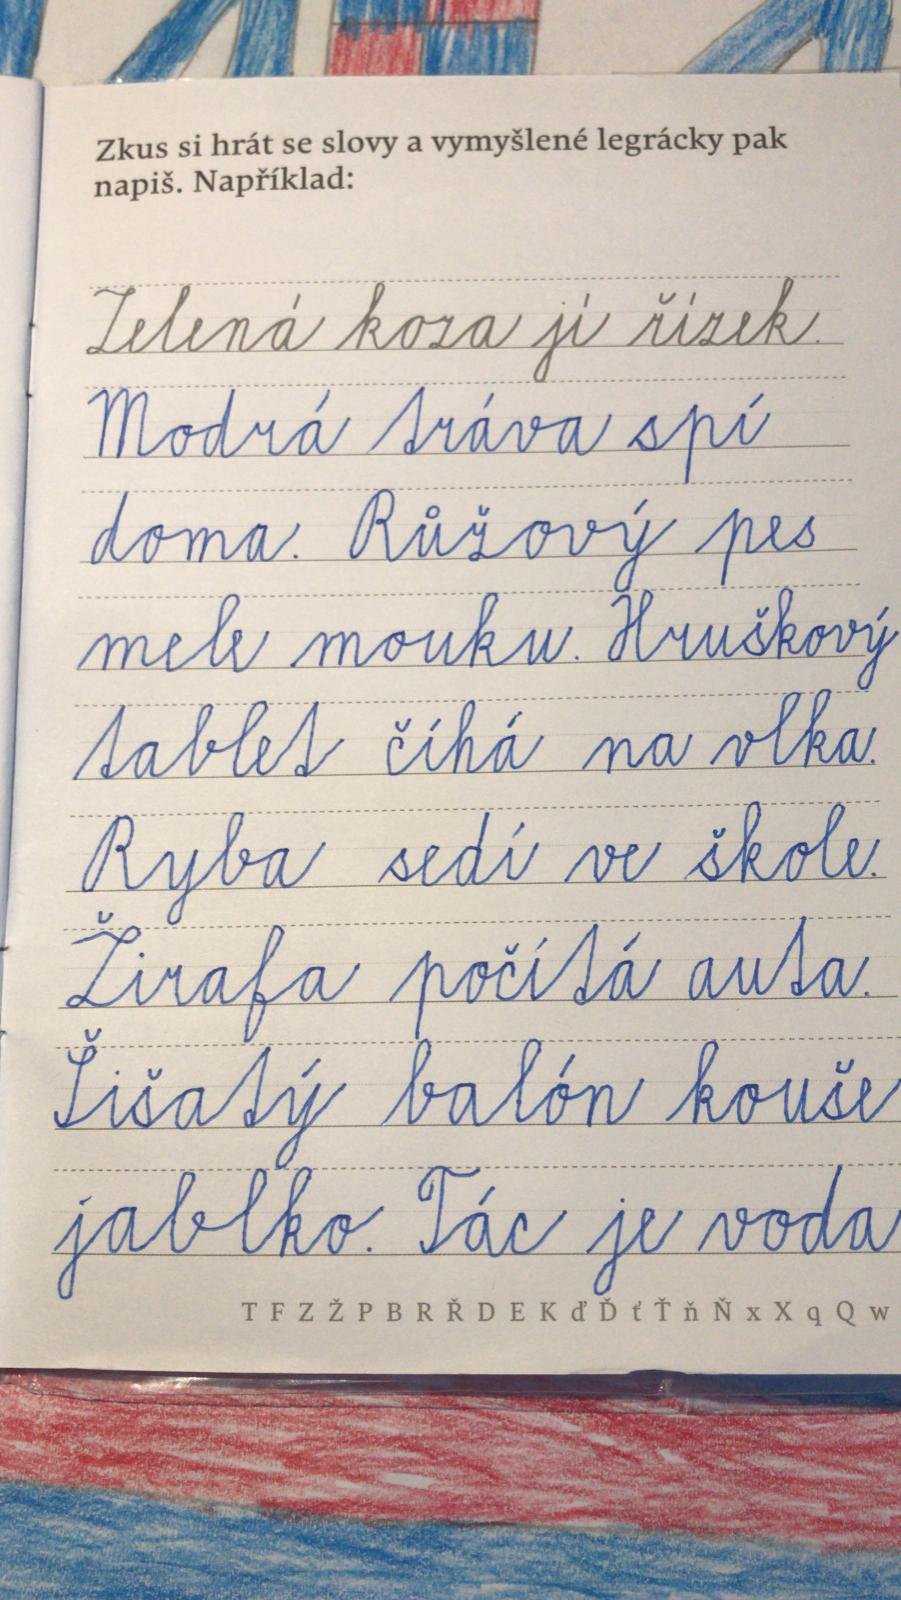 Zkus si hrát se slovy a vymyšlené legrácky pak
napiš. Například:
Zelená koza jí řízek.
Modrá tráva spí
doma. Růžový pes
mele mouku. Hruškový
tablet číhá na vlka.
Ryba sedí ve škole.
Žirafa počítá auta.
Šišatý balón kouše
jablko. Tác je voda
T F Z Ž P B R Ř D E K ď Ď ť Ť ň Ň x X q Q w